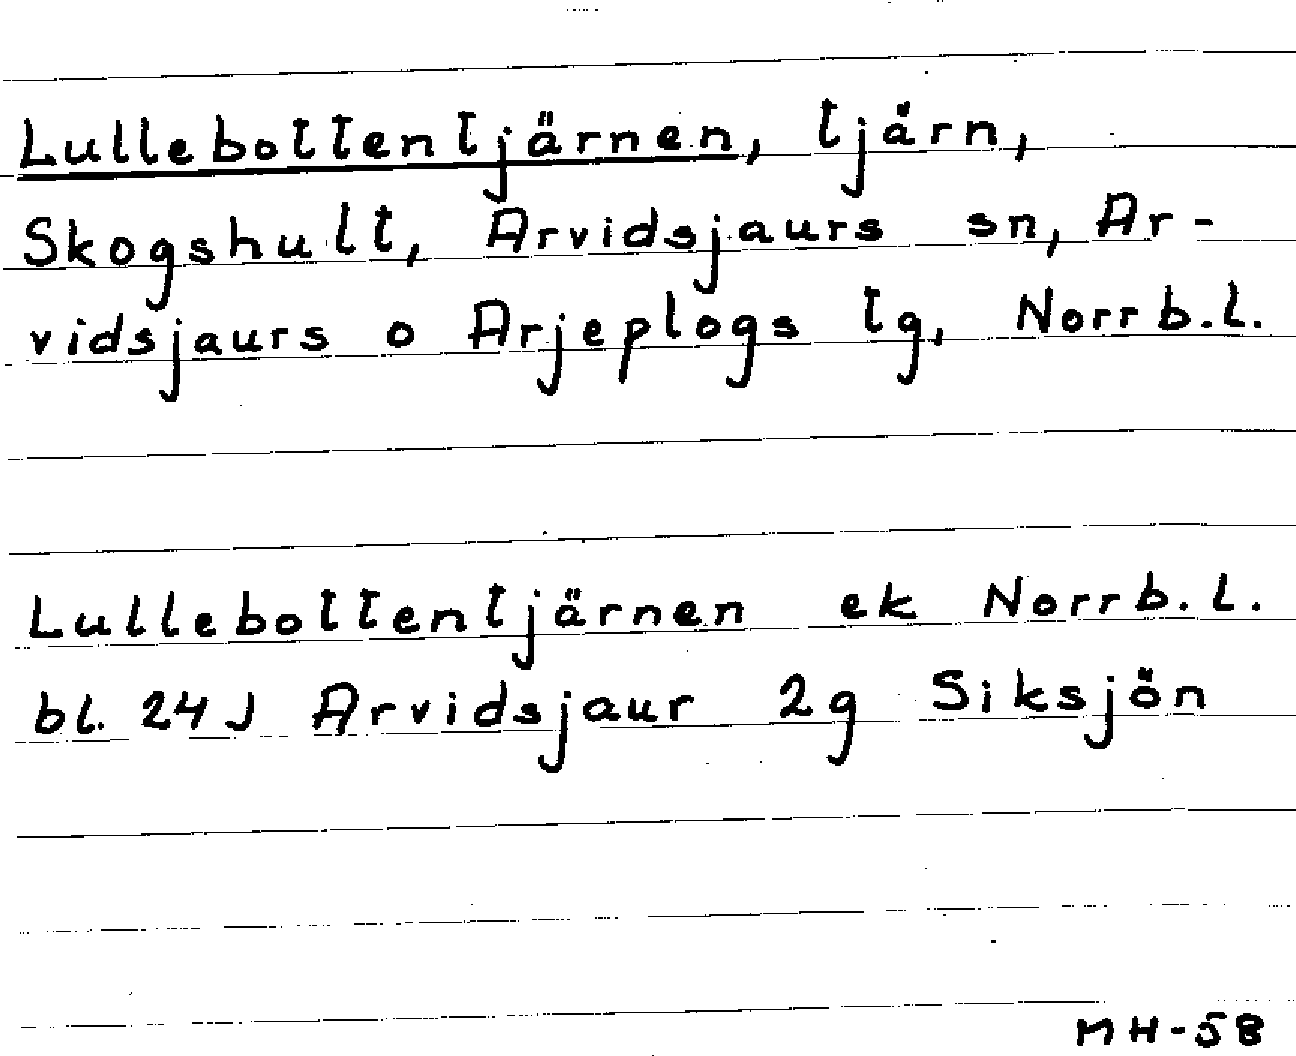 Lullebottentjärnen, tjärn,
Skogshult, Arvidsjaurs sn, Ar-
vidsjaurs o Arjeplogs tg, Norrb.l.
Lullebottentjärnen ek Norrb.l.
bl. 24J Arvidsjaur 2g Siksjön
MH-58